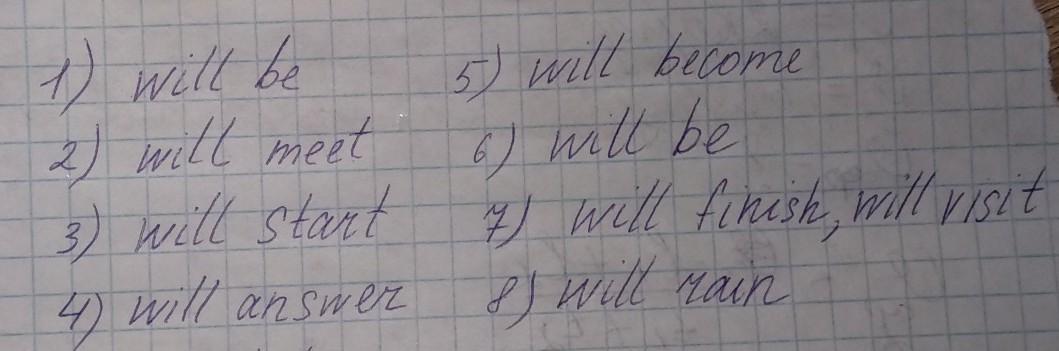 1) will be
2) will meet
3) will start
4) will answer
5) will become
6) will be
7) will finish, will visit
8) will rain